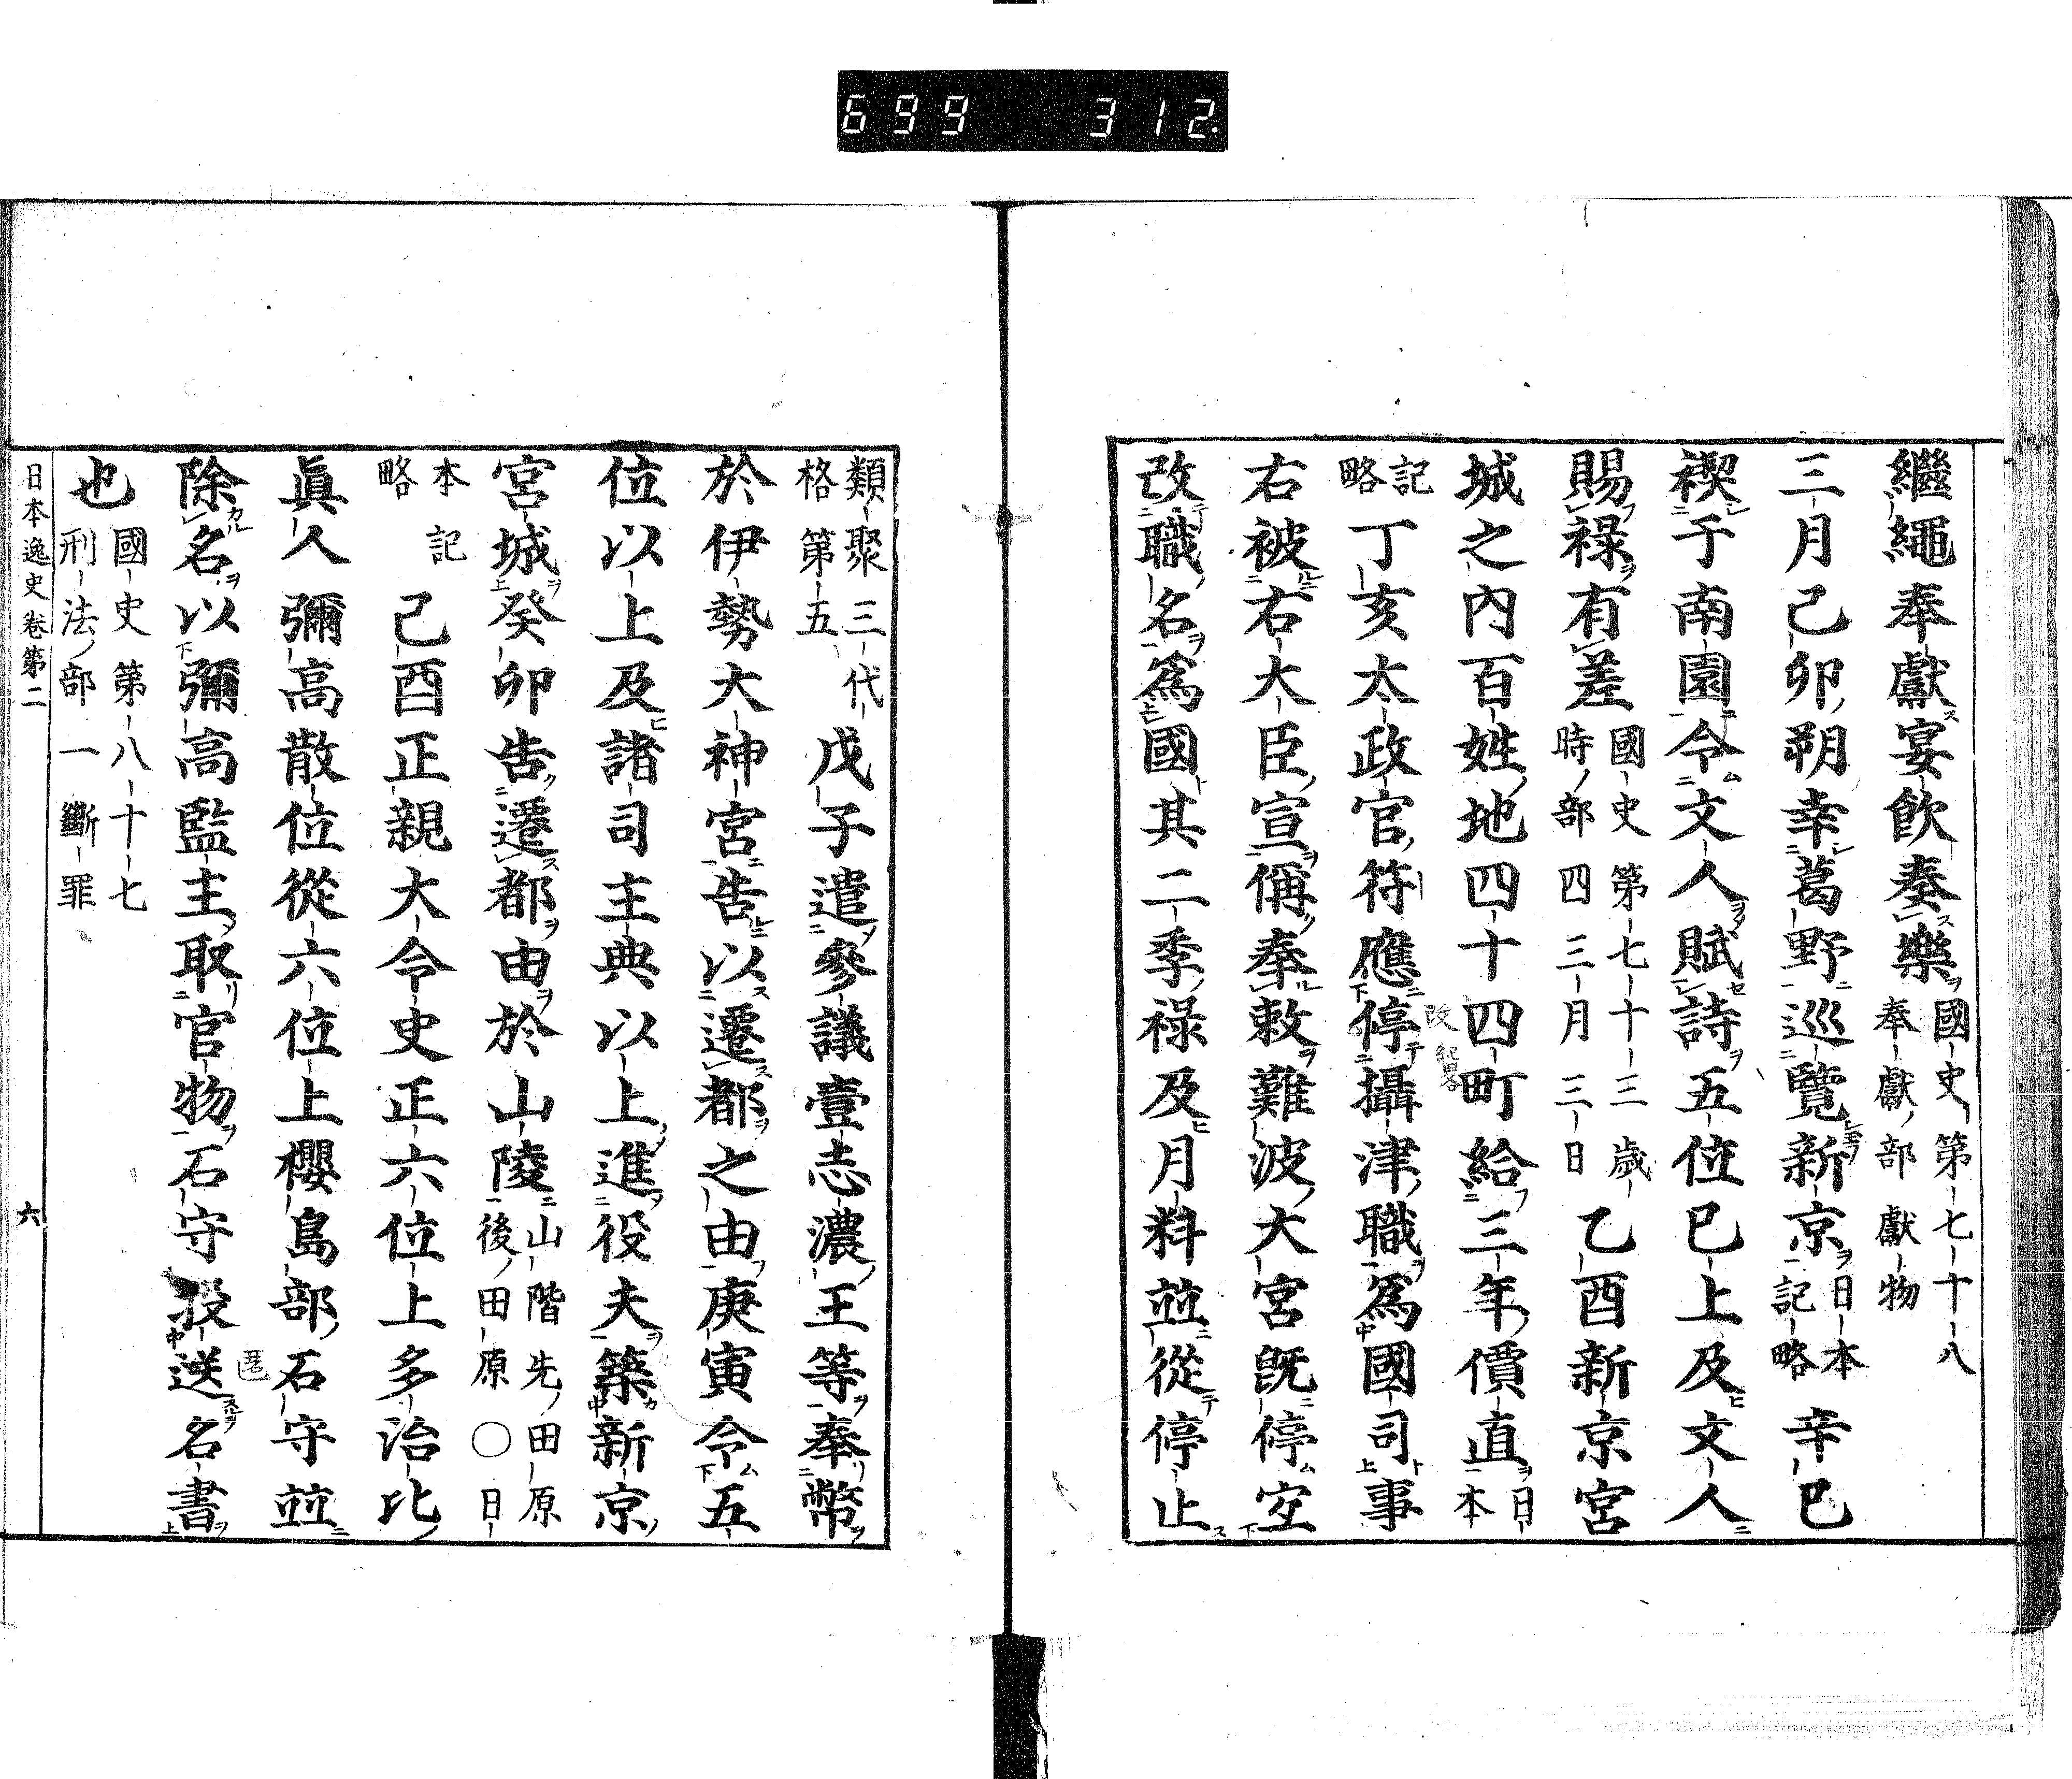 699 312
繼繩奉獻宴飲奏樂國史第七十八奉獻部獻物
三月己卯朔幸葛野巡覽新京日本記略辛巳
禊于南園令文人賦詩五位已上及文人
賜祿有差國史第七十三歲時部四三月三日乙酉新京宮
城之內百姓地四十四町給三年價直日本
記略丁亥太政官符應停攝津職爲國司事
右被右大臣宣偁奉敕難波大宮既停宜
改職名爲國其二季祿及月料並從停止
類聚三代格第五戊子遣參議壹志濃王等奉幣
於伊勢大神宮告以遷都之由庚寅令五
位以上及諸司主典以上進役夫築新京
宮城癸卯告遷都由於山陵山階先田原後田原〇日
本記略己酉正親大令史正六位上多治比
眞人彌高散位從六位上櫻島部石守並
除名以彌高監主取官物石守投送名書
也國史第八十七刑法部一斷罪
日本逸史卷第二
六